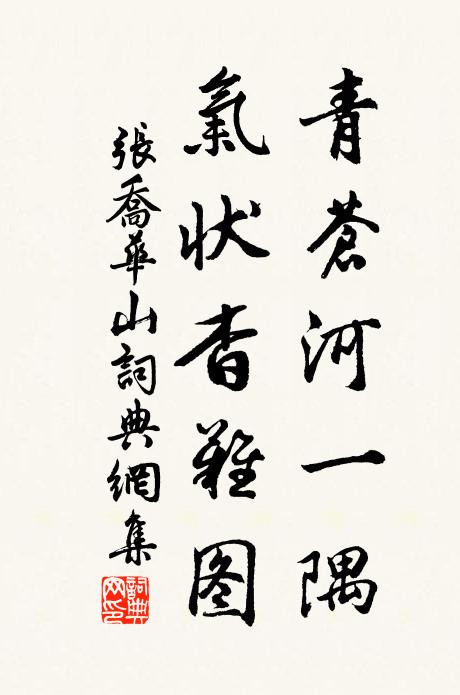 青蒼河一隅
氣状杳難图
張喬華山詞典網集
詞典网印